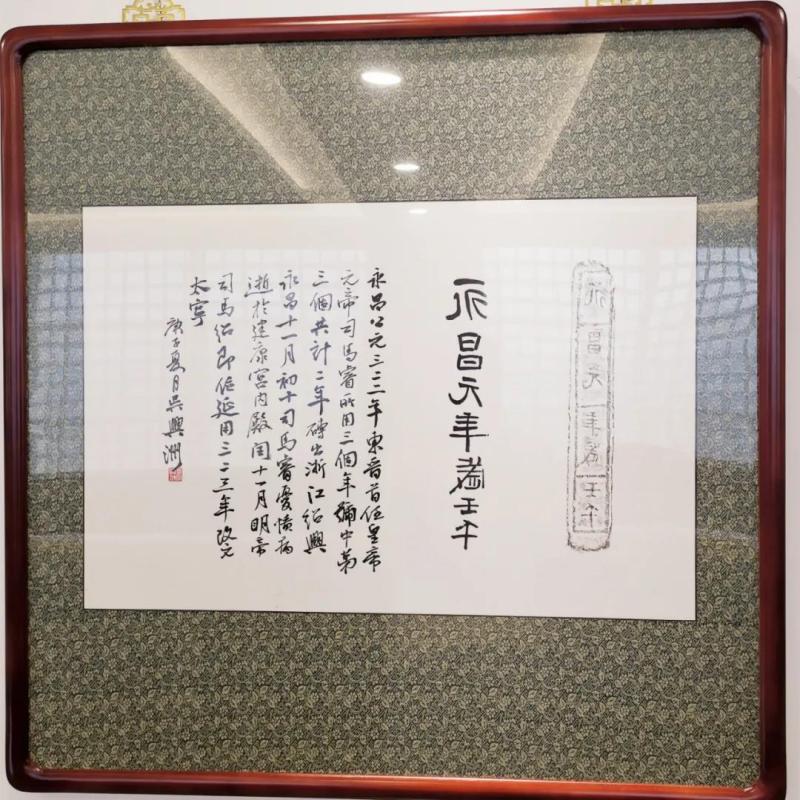 永昌元年歲壬午
永昌元年歲壬午
永昌公元三二二年東晉首任皇帝
元帝司馬睿所用三個年號中第
三個共計二年磚出浙江紹興
永昌十一月初十司馬睿憂憤病
逝於建康宮内殿閏十一月明帝
司馬紹即位延用三二三年改元
太寧
庚子夏月吳興洲